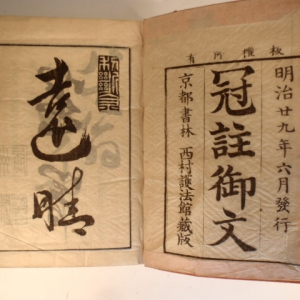 板權所有
明治廿九年六月發行
冠註御文
京都書林 西村護法館藏版
遠晴